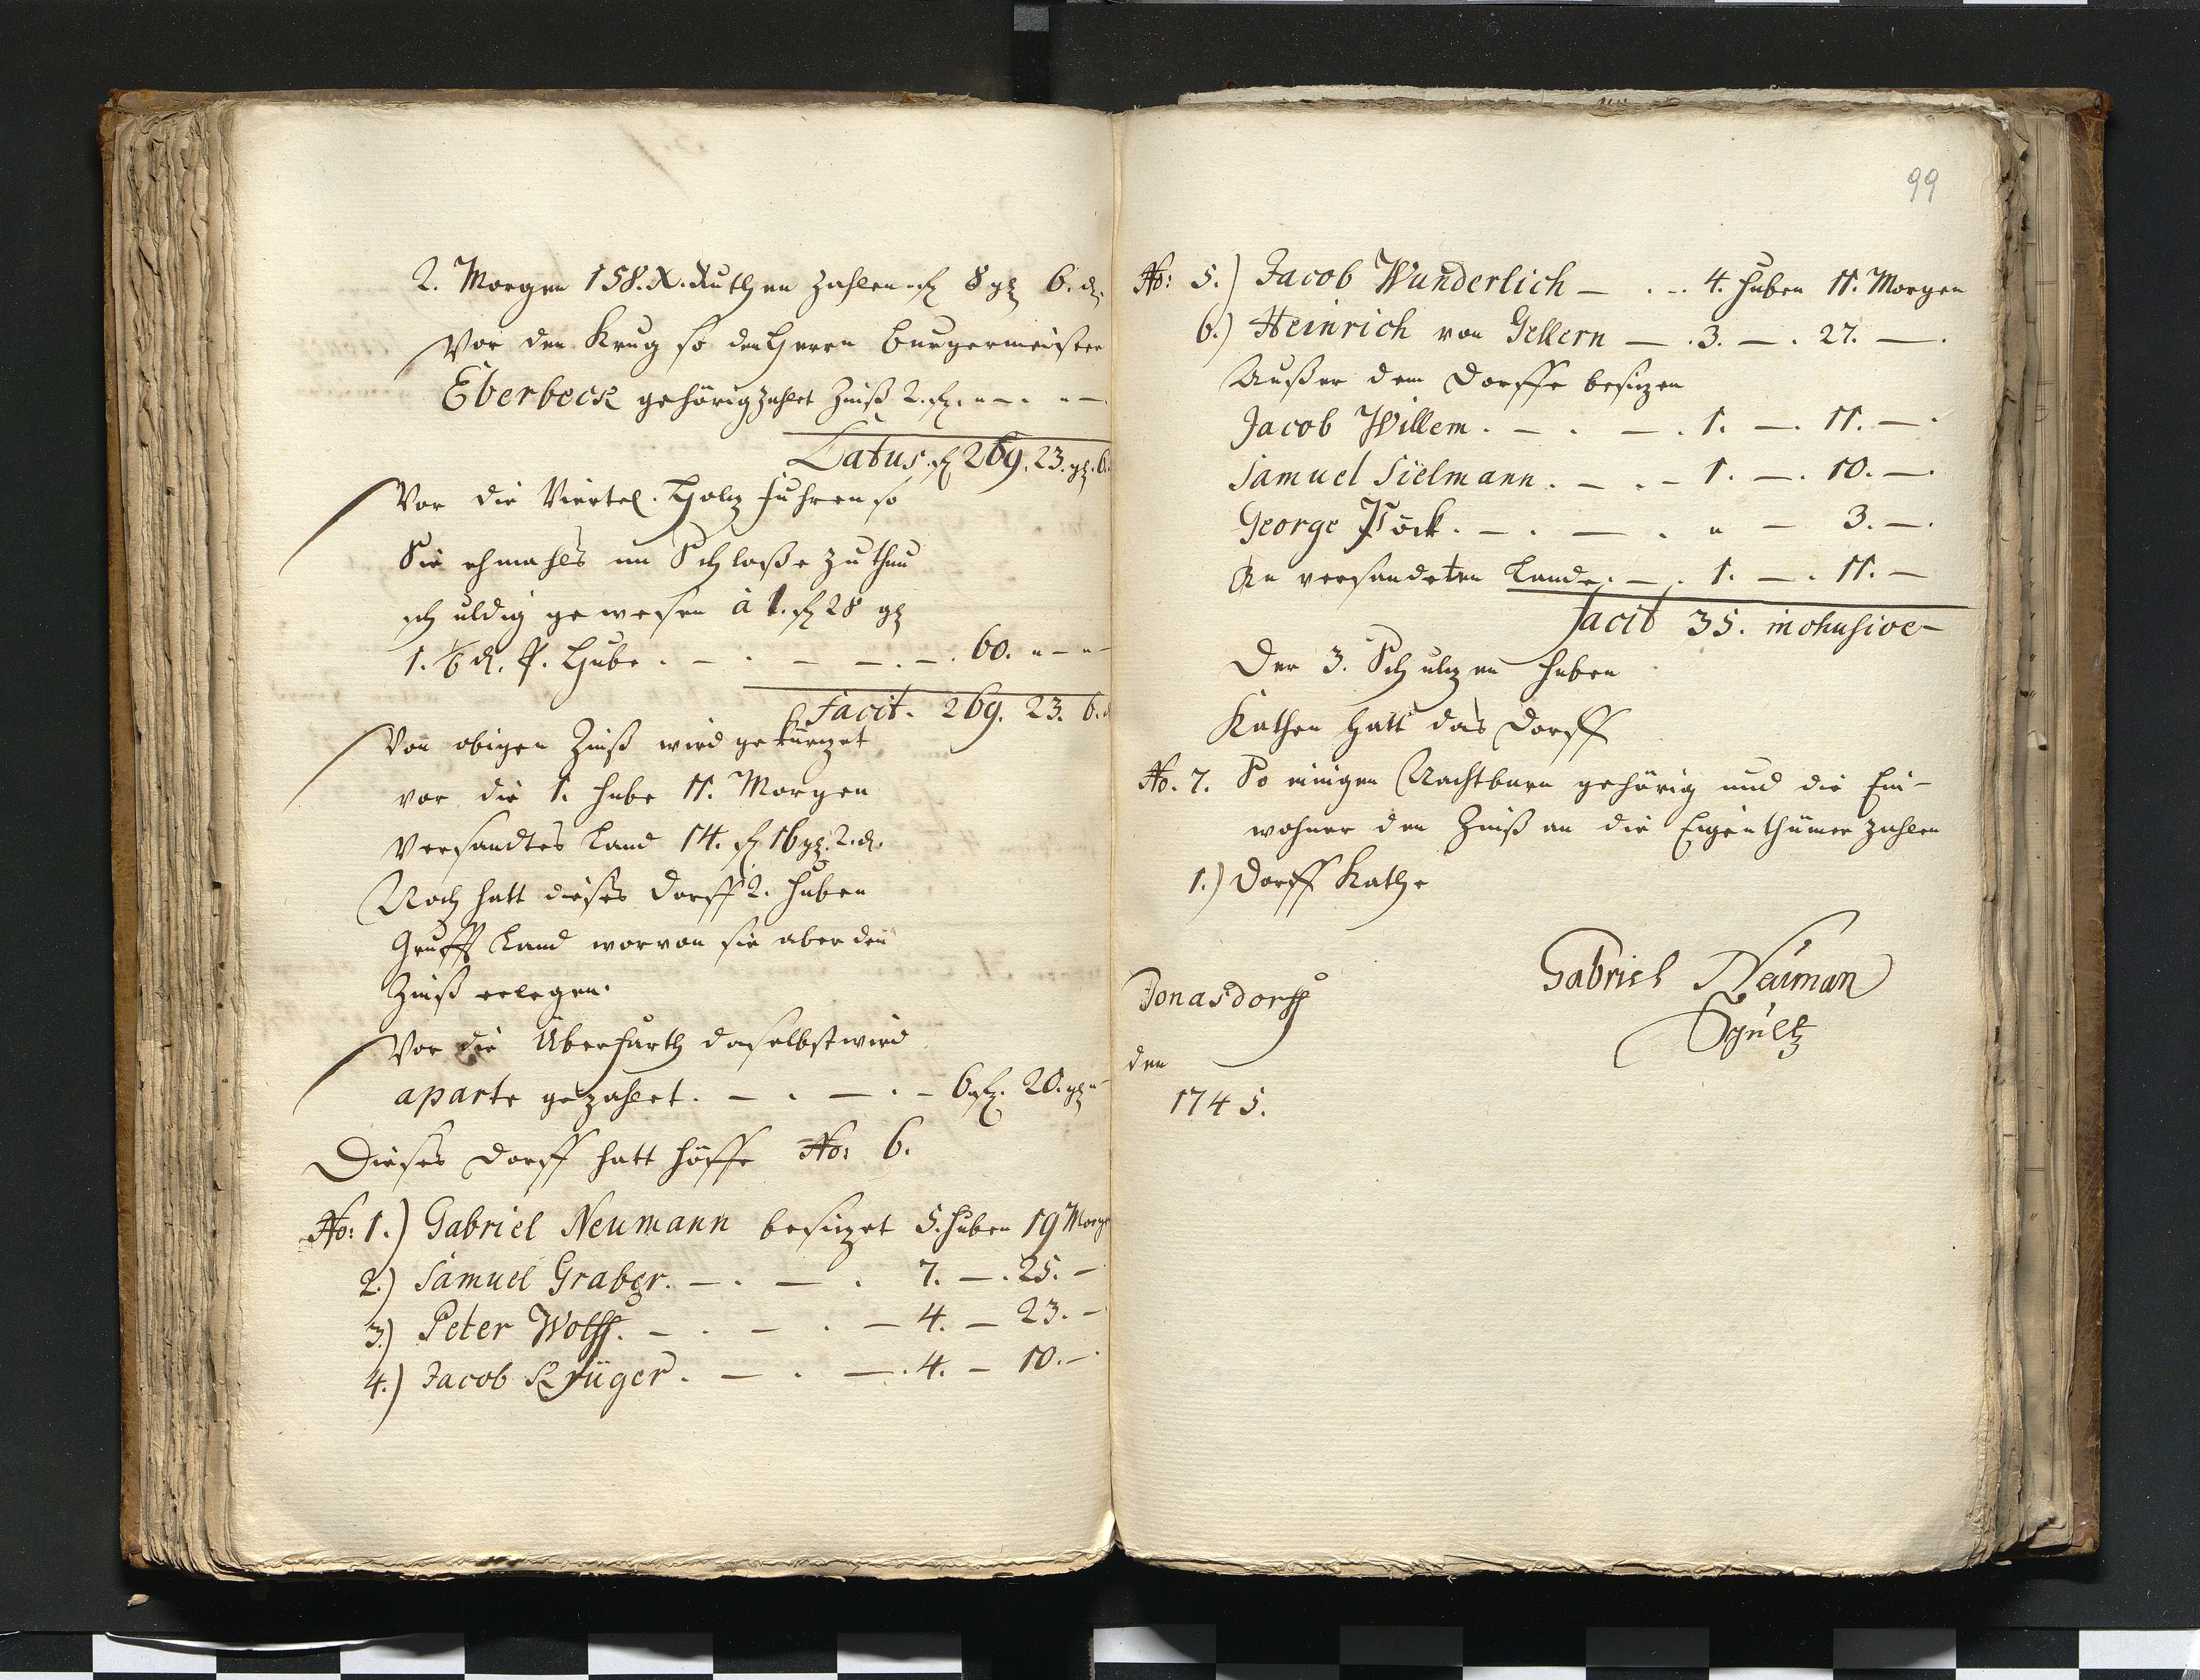 2. Morgen 158. R. Ruthen zahlen fl 8 gl 6. d.
Vor den Krug so den Herrn Burgermeister
Eberbeck gehörig zahlet Zinß 2. fl. " — . " —
Latus. fl 269. 23. gl. 6.
Vor die Viertel. Holtz fuhren so
Sie ehmahls im Schloße zu thun
schuldig gewesen à 1. fl 28 gl
1. 1/6 d. p. Hube . — . — — . — . 60. " — " —
Facit. 269. 23. 6. d
Von obigen Zinß wird gekürtzet
vor die 1. Hube 11. Morgen
Versandtes Land 14. fl 16 gl. 2. d.
Noch hatt dieses Dorff 2. Huben
Land worvon sie aber den
Zinß erlegen.
Vor die Überfarth daselbst wird
aparte gezahlet. — . — . — 6. fl. 20. gl "
Dieses Dorff hatt Höffe No: 6.
No: 1.) Gabriel Neumann besitzet 5. Huben 19 Morge
2.) Samuel Graber. — . — . 7. — . 25. —
3.) Peter Wolff. — . — . — 4. — 23. —
4.) Jacob Krüger. — . — . 4. — 10. —
99
No: 5.) Jacob Wunderlich — . — 4. Huben 11. Morgen
6.) Heinrich von Gellern — . 3. — . 27. — .
Außer dem Dorffe besitzen
Jacob Willem. — . — . 1. — . 11. — .
Samuel Sielmann. — . — 1. — . 10. — .
George Töck. — . — . " — 3. — .
An versandeten Lande. — . 1. — . 11. —
Facit 35. inclusive
Der 3. Schultzen Huben
Kathen hatt das Dorff
No. 7. So einigen Nachtbarn gehörig und die Ein-
wohner den Zinß an die Eigenthümer zahlen
1.) Dorff Kathe
Gabriel Neiman
Schultz
Jonasdorff
den
1745.